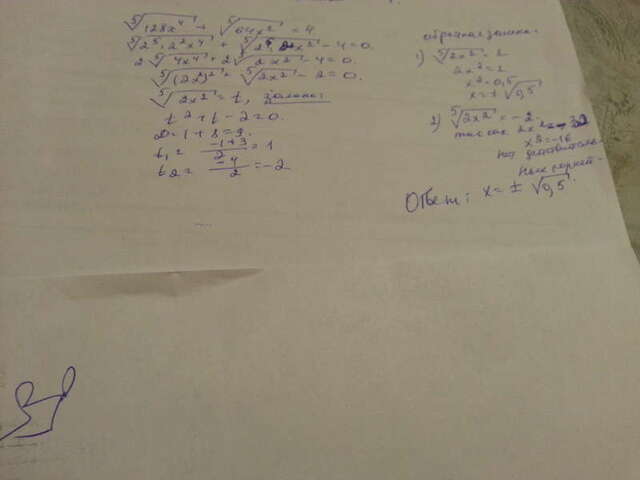 ⁵√128x⁴ + ⁵√64x² = 4
⁵√2⁵·2²x⁴ + ⁵√2⁵·2x² - 4 = 0.
2⁵√4x⁴ + 2⁵√2x² - 4 = 0.
⁵√(2x²)² + ⁵√2x² - 2 = 0.
⁵√2x² = t, замена.
t² + t - 2 = 0.
D = 1 + 8 = 9.
t₁ = (-1+3)/2 = 1
t₂ = -4/2 = -2
обратная замена.
1) ⁵√2x² = 1
2x² = 1
x² = 0,5
x = ± √0,5
2) ⁵√2x² = -2
2x² = -32
x² = -16
нет
Нет корней.
Ответ: x = ± √0,5.